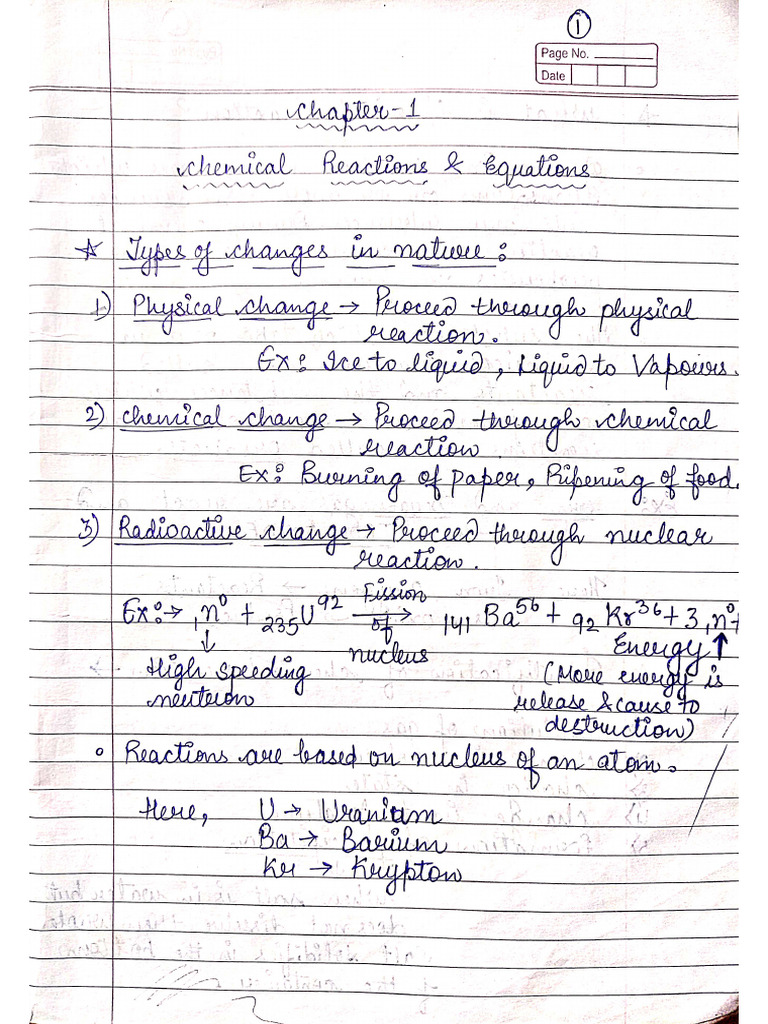 1
Page No.
Date
Chapter-1
Chemical Reactions & Equations
☆ Types of changes in nature :
1) Physical change → Proceed through physical
reaction.
Ex: Ice to liquid, Liquid to Vapours.
2) chemical change → Proceed through chemical
reaction.
Ex: Burning of paper, Ripening of food.
3) Radioactive change → Proceed through nuclear
reaction.
Ex:→ ₁n⁰ + ₂₃₅U⁹² Fission of nucleus → ₁₄₁Ba⁵⁶ + ₉₂Kr³⁶ + 3 ₁n⁰ +
↓ Energy ↑
High speeding (More energy is
neuteron release & cause to
destruction)
• Reactions are based on nucleus of an atom.
Here, U → Uranium
Ba → Barium
Kr → Krypton